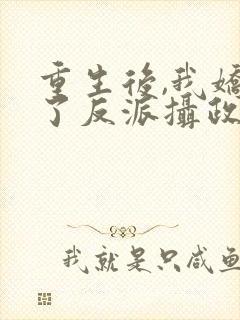 重生後,我
了反派攝政
我就是只咸鱼